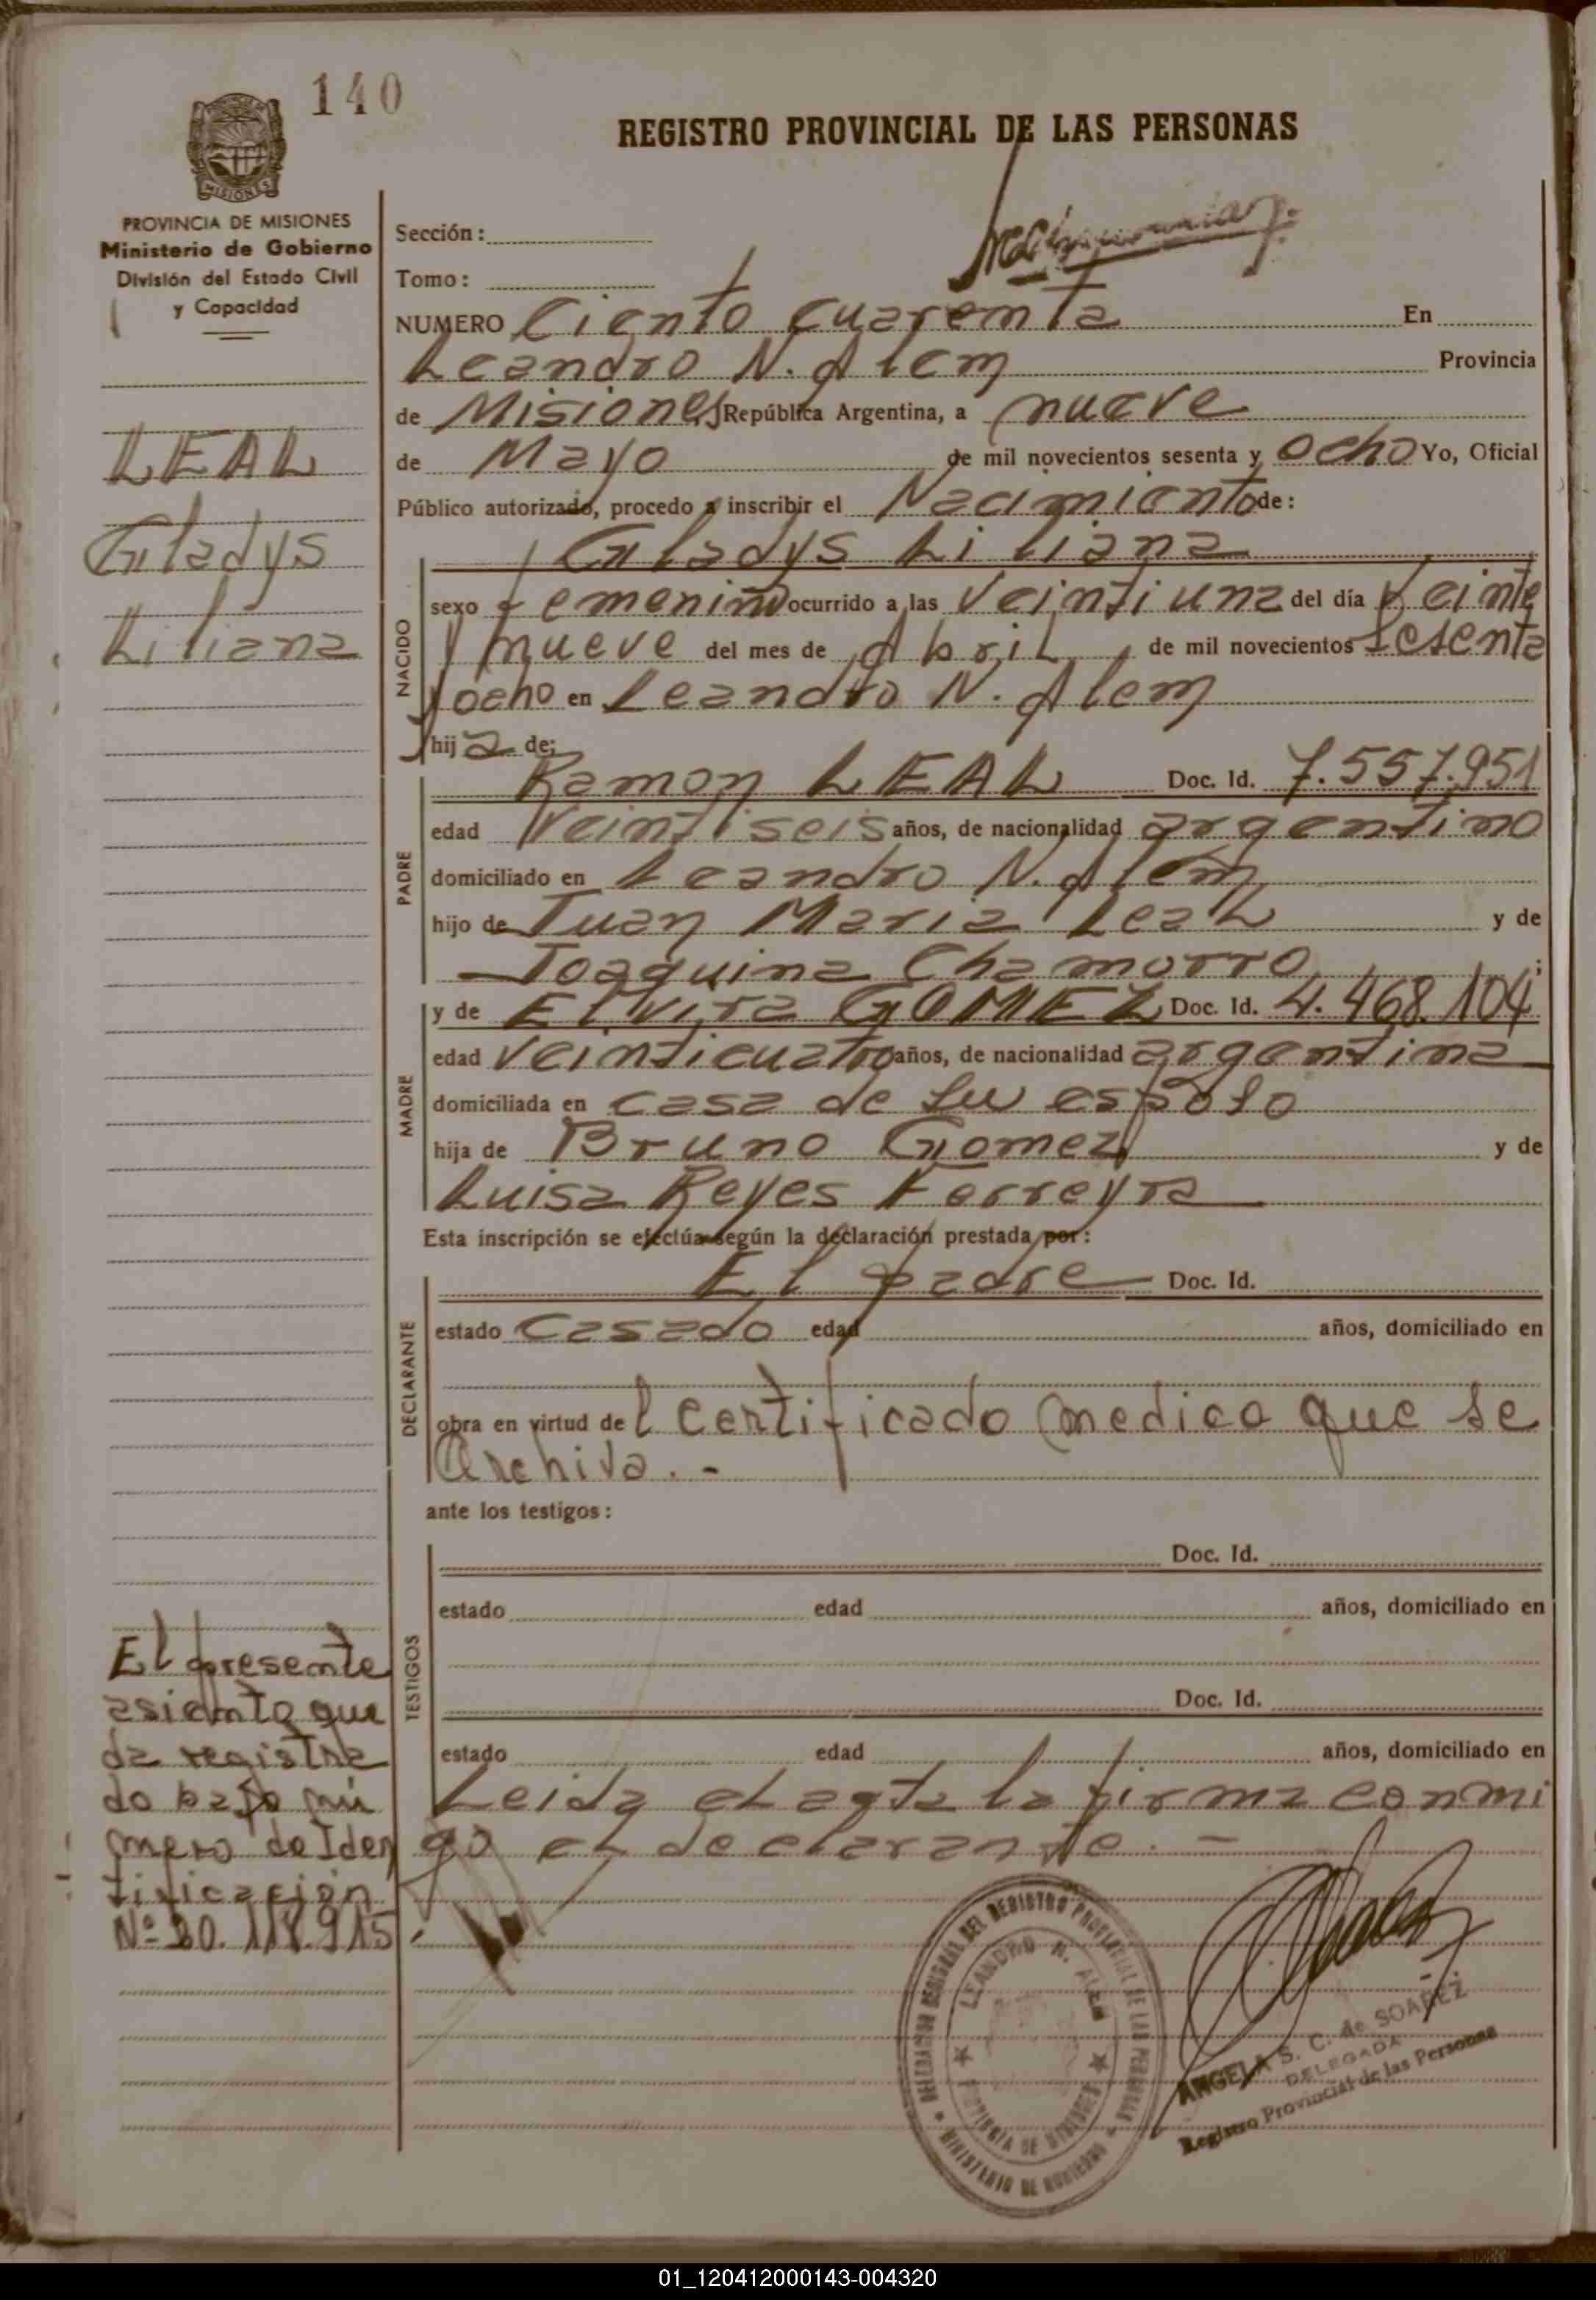 140
REGISTRO PROVINCIAL DE LAS PERSONAS
PROVINCIA DE MISIONES
Ministerio de Gobierno
División del Estado Civil
y Capacidad
LEAL
Gladys
Liliana
Sección:
Tomo:
NUMERO Ciento cuarenta En
Leandro N. Alem Provincia
de Misiones República Argentina, a nueve
de Mayo de mil novecientos sesenta y ocho Yo, Oficial
Público autorizado, procedo a inscribir el Nacimiento de:
Gladys Liliana
NACIDO
sexo femenino ocurrido a las veintiuna del día veinte
y nueve del mes de Abril de mil novecientos sesenta
y ocho en Leandro N. Alem
hija de:
PADRE
Ramon LEAL Doc. Id. 7.557.951
edad veintiseis años, de nacionalidad argentino
domiciliado en Leandro N. Alem
hijo de Juan Maria Leal y de
Joaquina Chamorro;
MADRE
y de Elvira GOMEZ Doc. Id. 4.468.104
edad veinticuatro años, de nacionalidad argentina
domiciliada en casa de su esposo
hija de Bruno Gomez y de
Luisa Reyes Ferreyra
Esta inscripción se efectúa según la declaración prestada por:
DECLARANTE
El padre Doc. Id.
estado casado edad años, domiciliado en
obra en virtud del certificado medico que se
Archiva.-
ante los testigos:
TESTIGOS
Doc. Id.
estado edad años, domiciliado en
Doc. Id.
estado edad años, domiciliado en
Leida el acta la firma conmi
go el declarante.-
El presente
asiento que
da registra
do bajo nú
mero de Iden
tificación
Nº 20.118.915
DELEGACION REGIONAL DEL REGISTRO PROVINCIAL DE LAS PERSONAS
MINISTERIO DE GOBIERNO
LEANDRO N. ALEM
PROVINCIA DE MISIONES
ANGELA S. C. de SOAREZ
DELEGADA
Registro Provincial de las Personas
01_120412000143-004320